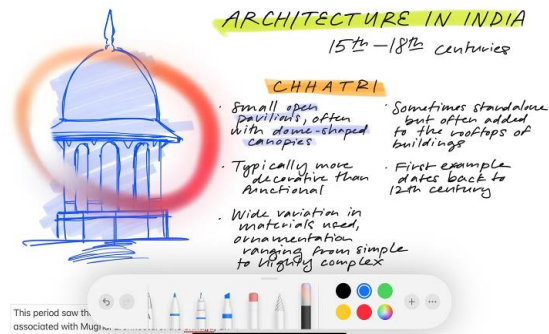 ARCHITECTURE IN INDIA
15th-18th centuries
CHHATRI
· Small open
pavilions, often
with dome-shaped
canopies
· Typically more
decorative than
functional
· Wide variation in
materials used,
ornamentation
ranging from simple
to highly complex
· Sometimes standalone
but often added
to the rooftops of
buildings
· First example
dates back to
12th century
This period saw
associated with